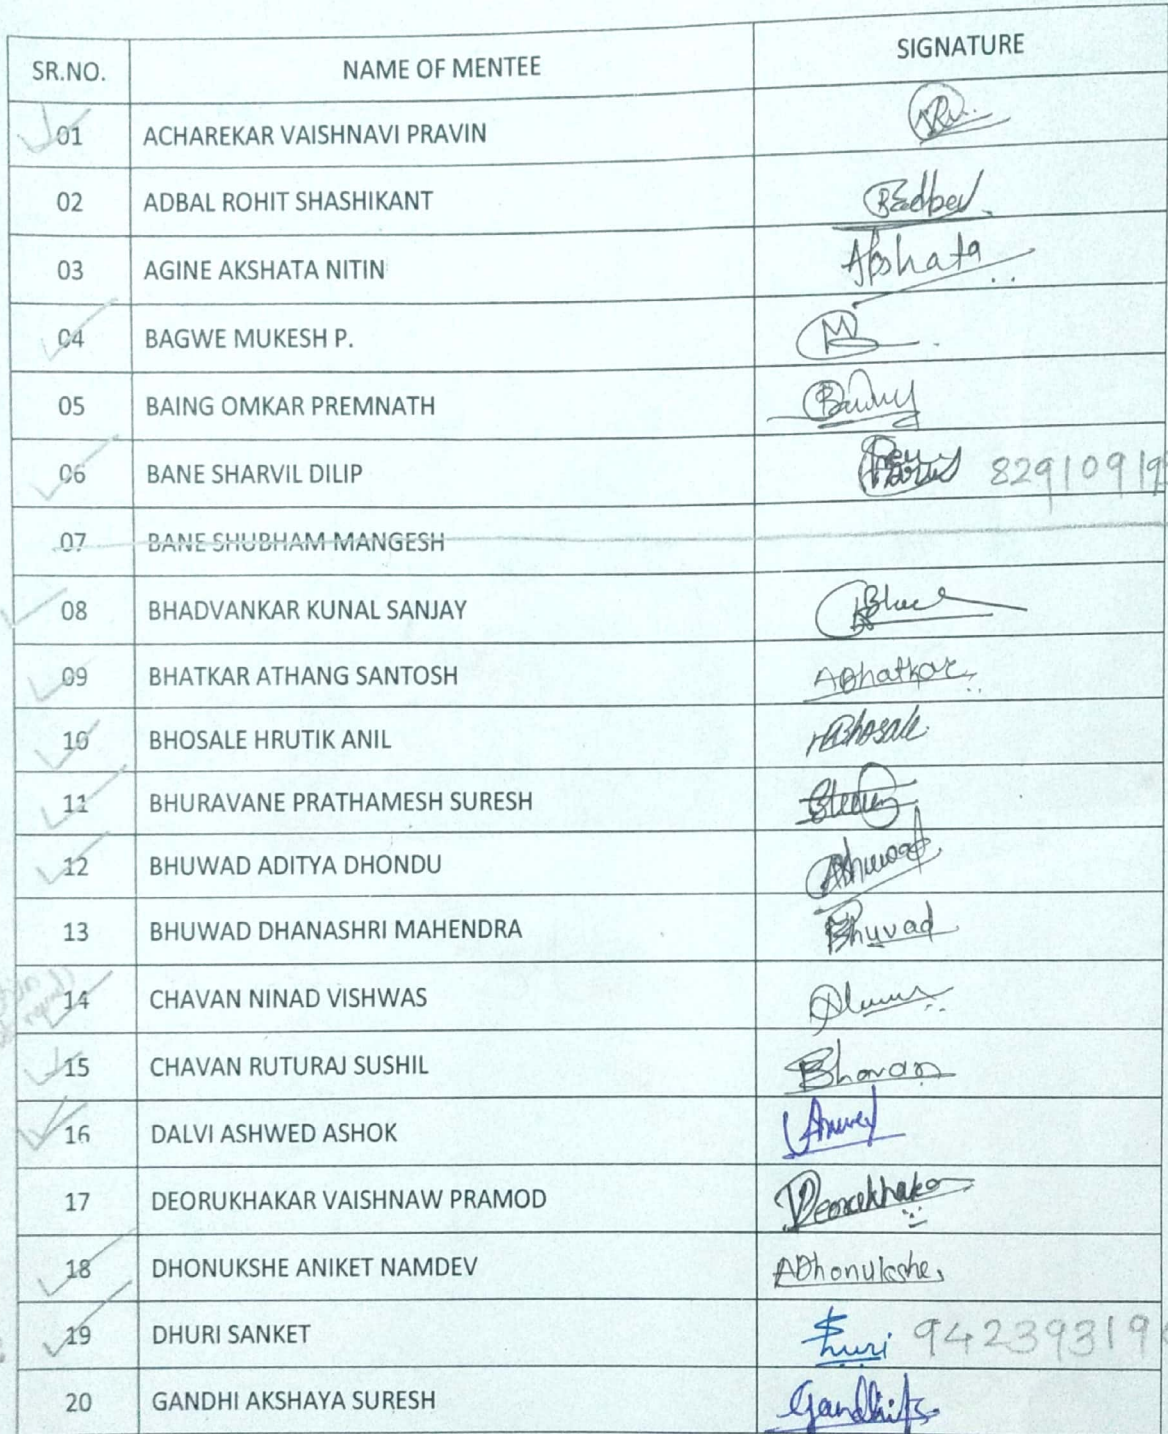 SR.NO. NAME OF MENTEE SIGNATURE
01 ACHAREKAR VAISHNAVI PRAVIN
02 ADBAL ROHIT SHASHIKANT
03 AGINE AKSHATA NITIN Akshata
04 BAGWE MUKESH P. M
05 BAING OMKAR PREMNATH
06 BANE SHARVIL DILIP 82910919
07 BANE SHUBHAM MANGESH
08 BHADVANKAR KUNAL SANJAY
09 BHATKAR ATHANG SANTOSH ABhatkar
10 BHOSALE HRUTIK ANIL HBhosale
11 BHURAVANE PRATHAMESH SURESH
12 BHUWAD ADITYA DHONDU
13 BHUWAD DHANASHRI MAHENDRA Bhuvad
14 CHAVAN NINAD VISHWAS
15 CHAVAN RUTURAJ SUSHIL
16 DALVI ASHWED ASHOK
17 DEORUKHAKAR VAISHNAW PRAMOD Deorukhakar
18 DHONUKSHE ANIKET NAMDEV ADhonukshe
19 DHURI SANKET 94239319
20 GANDHI AKSHAYA SURESH